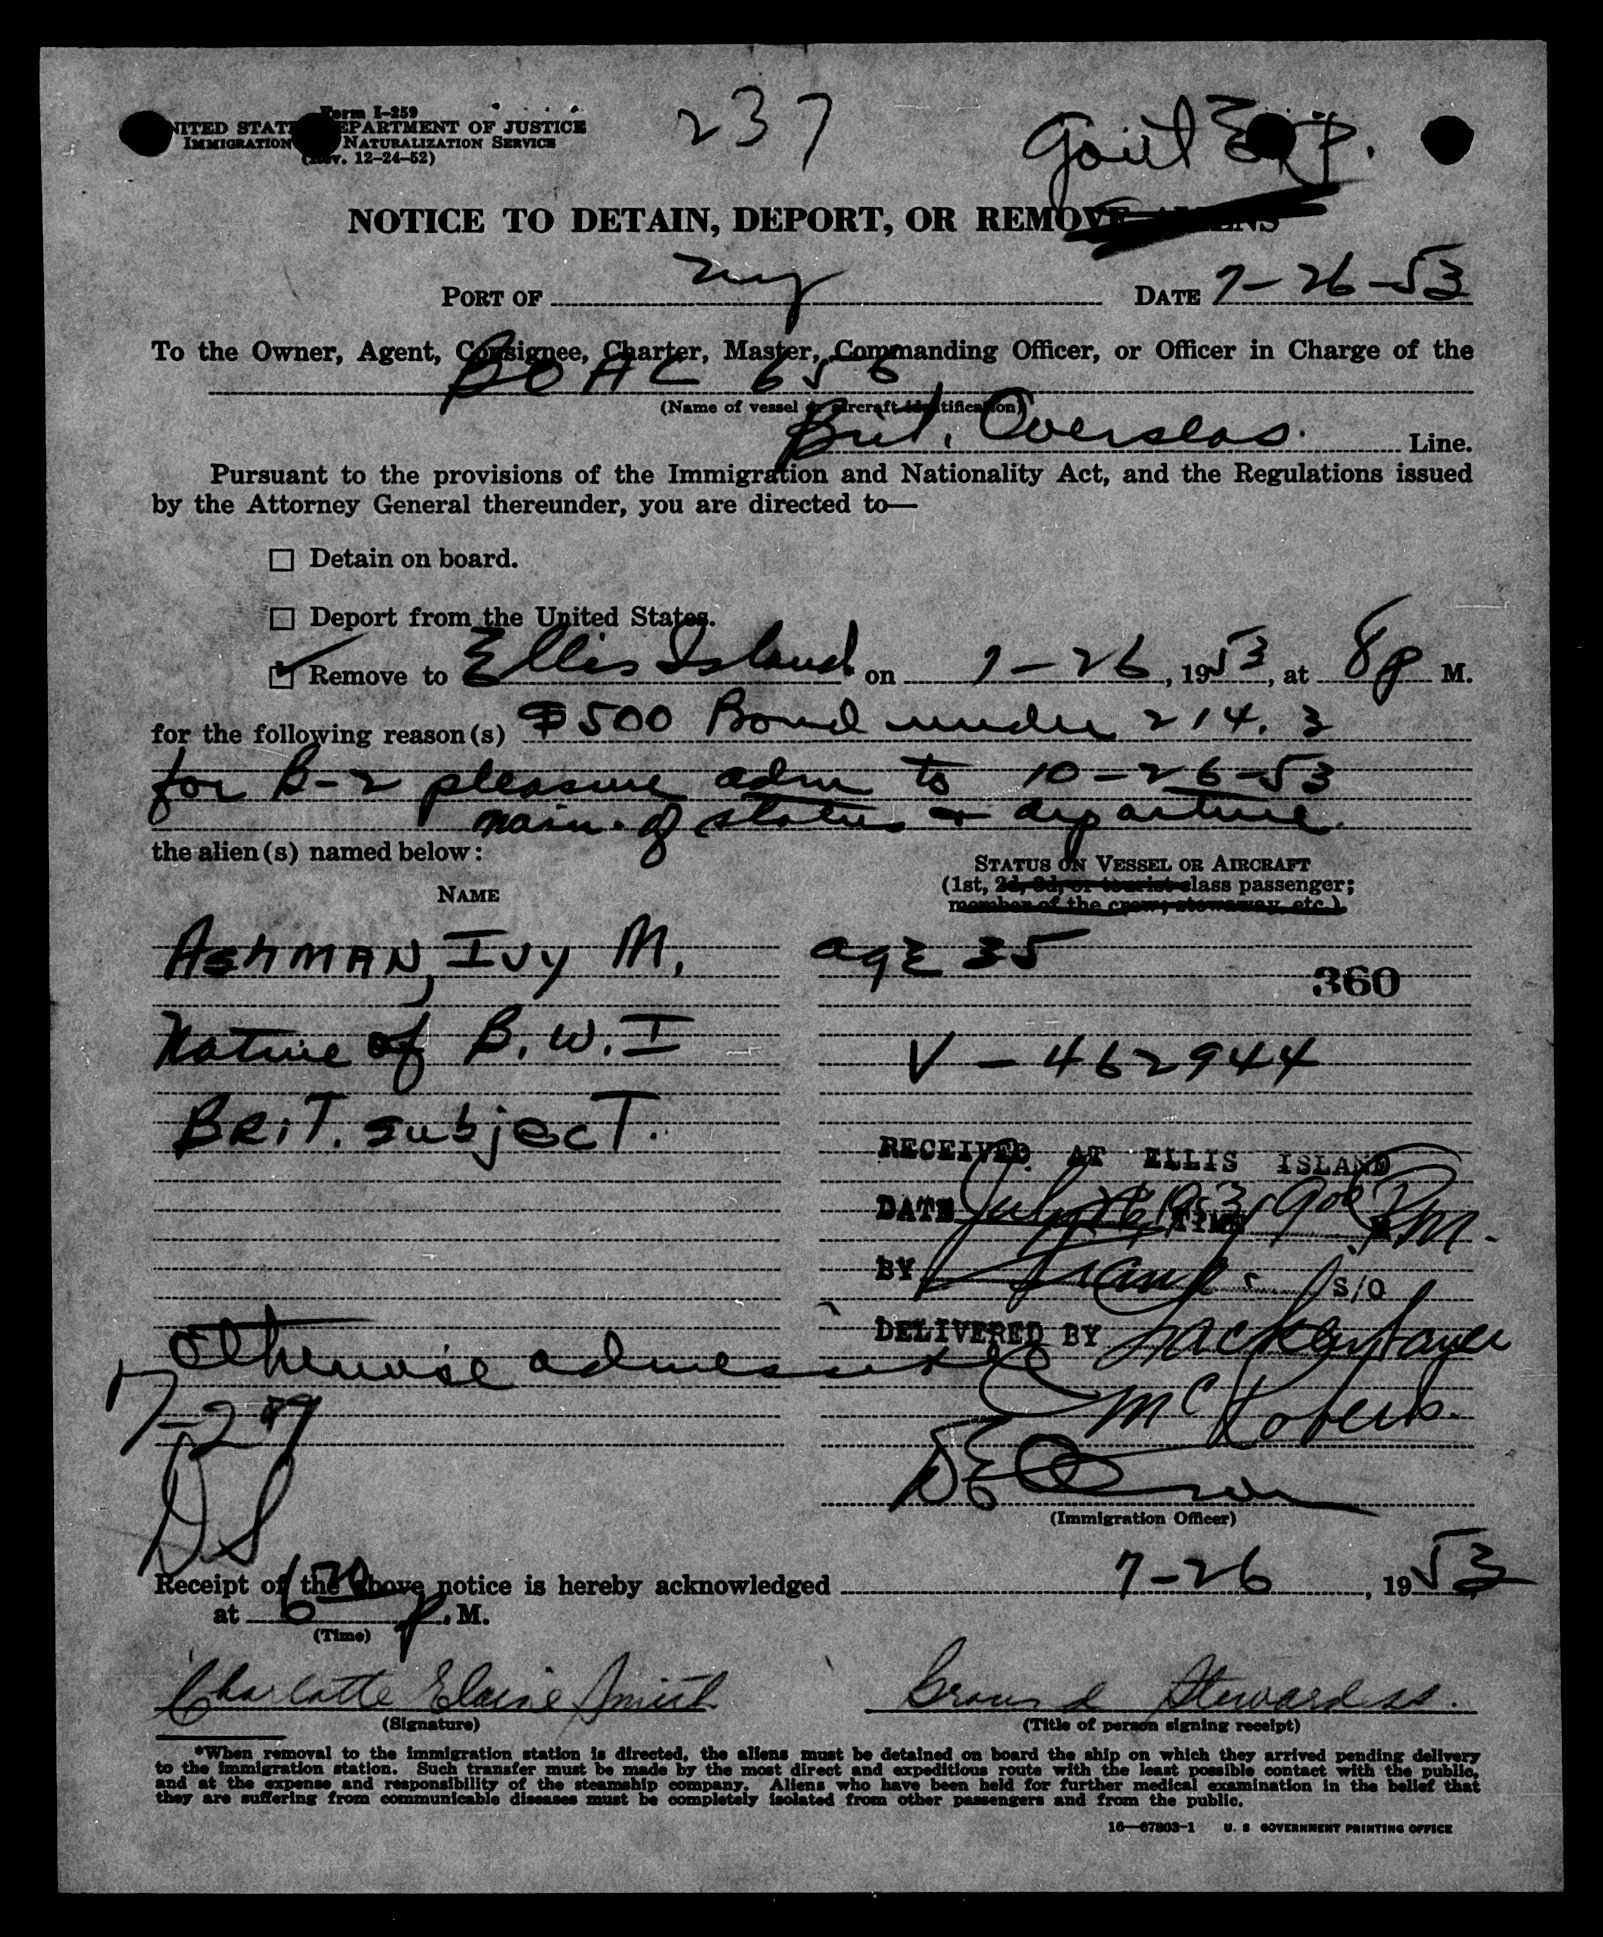 Form I-259
UNITED STATES DEPARTMENT OF JUSTICE
IMMIGRATION NATURALIZATION SERVICE
(Rev. 12-24-52)
237
Gov't Exp.
NOTICE TO DETAIN, DEPORT, OR REMOVE ALIENS
PORT OF NY DATE 7-26-53
To the Owner, Agent, Consignee, Charter, Master, Commanding Officer, or Officer in Charge of the
BOAC 656
(Name of vessel or aircraft identification)
Brit. Overseas. Line.
Pursuant to the provisions of the Immigration and Nationality Act, and the Regulations issued
by the Attorney General thereunder, you are directed to—
☐ Detain on board.
☐ Deport from the United States.
☑ Remove to Ellis Island on 7-26, 1953, at 8 p M.
for the following reason(s) $500 Bond under 214.3
for B-2 pleasure adm to 10-26-53
main. of status + departure.
the alien(s) named below:
STATUS ON VESSEL OR AIRCRAFT
(1st, 2d, 3d, or tourist class passenger;
member of the crew; stowaway, etc.)
NAME
ASHMAN, Ivy M. age 35
360
Native of B.W.I V-462944
BRIT. subject.
RECEIVED AT ELLIS ISLAND
DATE July 26, 1953 TIME 9 00 PM.
BY S/O
DELIVERED BY
Otherwise admissible
7-29
McRoberts.
DS
(Immigration Officer)
Receipt of the above notice is hereby acknowledged 7-26, 1953
at 6 p. M.
(Time)
Charlotte Elaine Smith Ground Stewardess.
(Signature) (Title of person signing receipt)
*When removal to the immigration station is directed, the aliens must be detained on board the ship on which they arrived pending delivery
to the immigration station. Such transfer must be made by the most direct and expeditious route with the least possible contact with the public,
and at the expense and responsibility of the steamship company. Aliens who have been held for further medical examination in the belief that
they are suffering from communicable diseases must be completely isolated from other passengers and from the public.
16—67803-1 U. S. GOVERNMENT PRINTING OFFICE